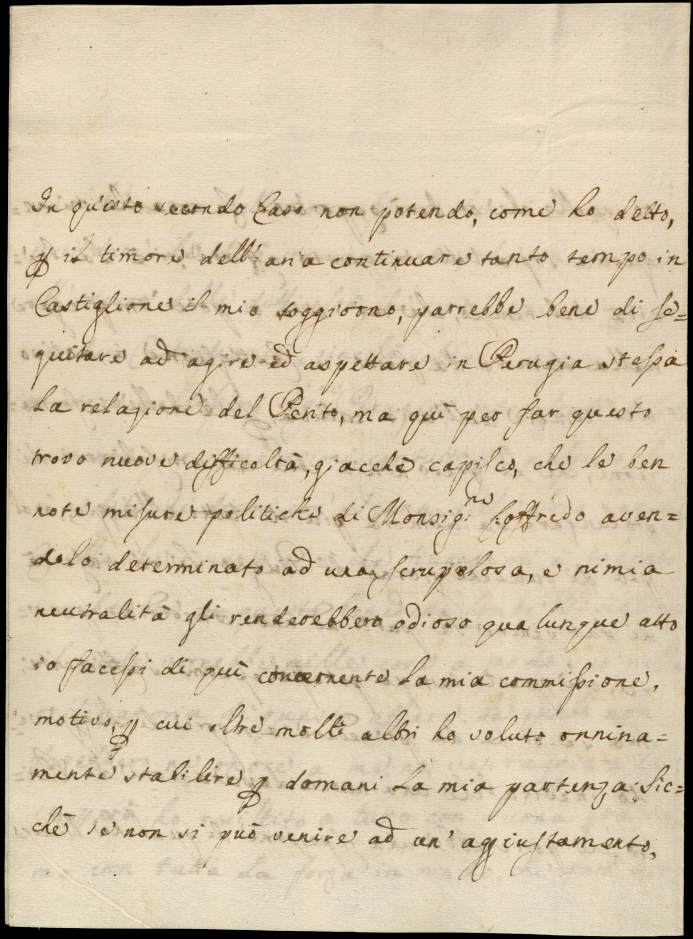 In questo secondo Caso non potendo, come ho detto,
p il timore dell'aria continuare tanto tempo in
Castiglione il mio soggiorno, parrebbe bene di se=
guitare ad agire ed aspettare in Perugia stessa
la relazione del Perito, ma quì per far questo
trovo nuove difficoltà, giacchè capisco, che le ben
note misure politiche di Monsig.re Goffredo aven=
dolo determinato ad una scrupolosa, e nimia
neutralità gli renderebbero odioso qualunque atto
io facessi di quì concernente la mia commissione,
motivo, p cui oltre molti altri ho voluto onnina=
mente stabilire p domani la mia partenza. Sic=
chè se non si può venire ad un' aggiustamento,